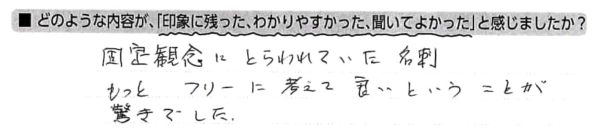 ■ どのような内容が、「印象に残った、わかりやすかった、聞いてよかった」と感じましたか？
固定観念にとらわれていた名刺
もっと フリーに考えて良いということが
驚きでした.